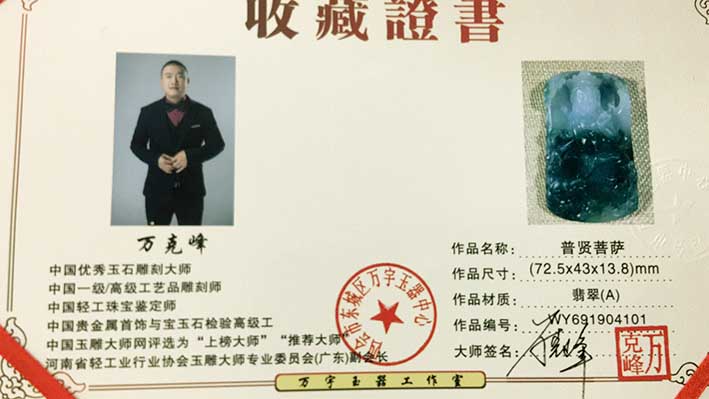 收藏證書
万克峰
中国优秀玉石雕刻大师
中国一级/高级工艺品雕刻师
中国轻工珠宝鉴定师
中国贵金属首饰与宝玉石检验高级工
中国玉雕大师网评选为“上榜大师”“推荐大师”
河南省轻工业行业协会玉雕大师专业委员会(广东)副会长
作品名称: 普贤菩萨
作品尺寸: (72.5x43x13.8)mm
作品材质: 翡翠(A)
作品编号: WY691904101
大师签名:
万克峰
会市东城区万宇玉器中心
万宇玉器工作室